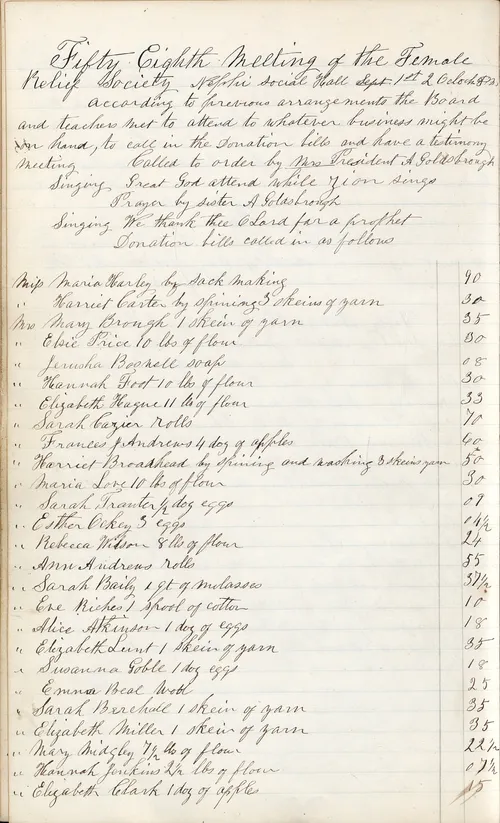 Fifty Eighth Meeting of the Female
Relief Society Nephi Social Hall Sept 1st 2 Oclock
according to previous arrangements the Board
and teachers met to attend to whatever business might be
on hand, to call in the Donation bills and have a testimony
meeting Called to order by Mrs President A Goldsbrough
Singing Great God attend while Zion sings
Prayer by sister A Goldsbrough
Singing We thank thee O Lord for a prophet
Donation bills called in as follows
Miss Maria Harley by sack making 90
" Harriet Carter by spining 3 skeins of yarn 30
Mrs Mary Brough 1 skein of yarn 35
" Elsie Price 10 lbs of flour 30
" Jerusha Boswell soap 08
" Hannah Foot 10 lbs of flour 30
" Elizabeth Hague 11 lbs of flour 33
" Sarah Cazier rolls 70
" Frances J Andrews 4 doz of apples 60
" Harriet Broadhead by spining and washing 3 skeins yarn 50
" Maria Love 10 lbs of flour 30
" Sarah Tranter 1/2 doz eggs 09
" Esther Ockey 3 eggs 04 1/2
" Rebecca Wilson 8 lbs of flour 24
" Ann Andrews rolls 55
" Sarah Baily 1 qt of molasses 37 1/2
" Eve Riches 1 spool of cotton 10
" Alice Atkinson 1 doz of eggs 18
" Elizabeth Lunt 1 skein of yarn 35
" Suwanna Goble 1 doz eggs 18
" Emma Beal Wool 25
" Sarah Berchall 1 skein of yarn 35
" Elizabeth Miller 1 skein of yarn 35
" Mary Midgley 7 1/2 lbs of flour 22 1/2
" Hannah Jenkins 2 1/2 lbs of flour 07 1/2
" Elizabeth Clark 1 doz of apples 15